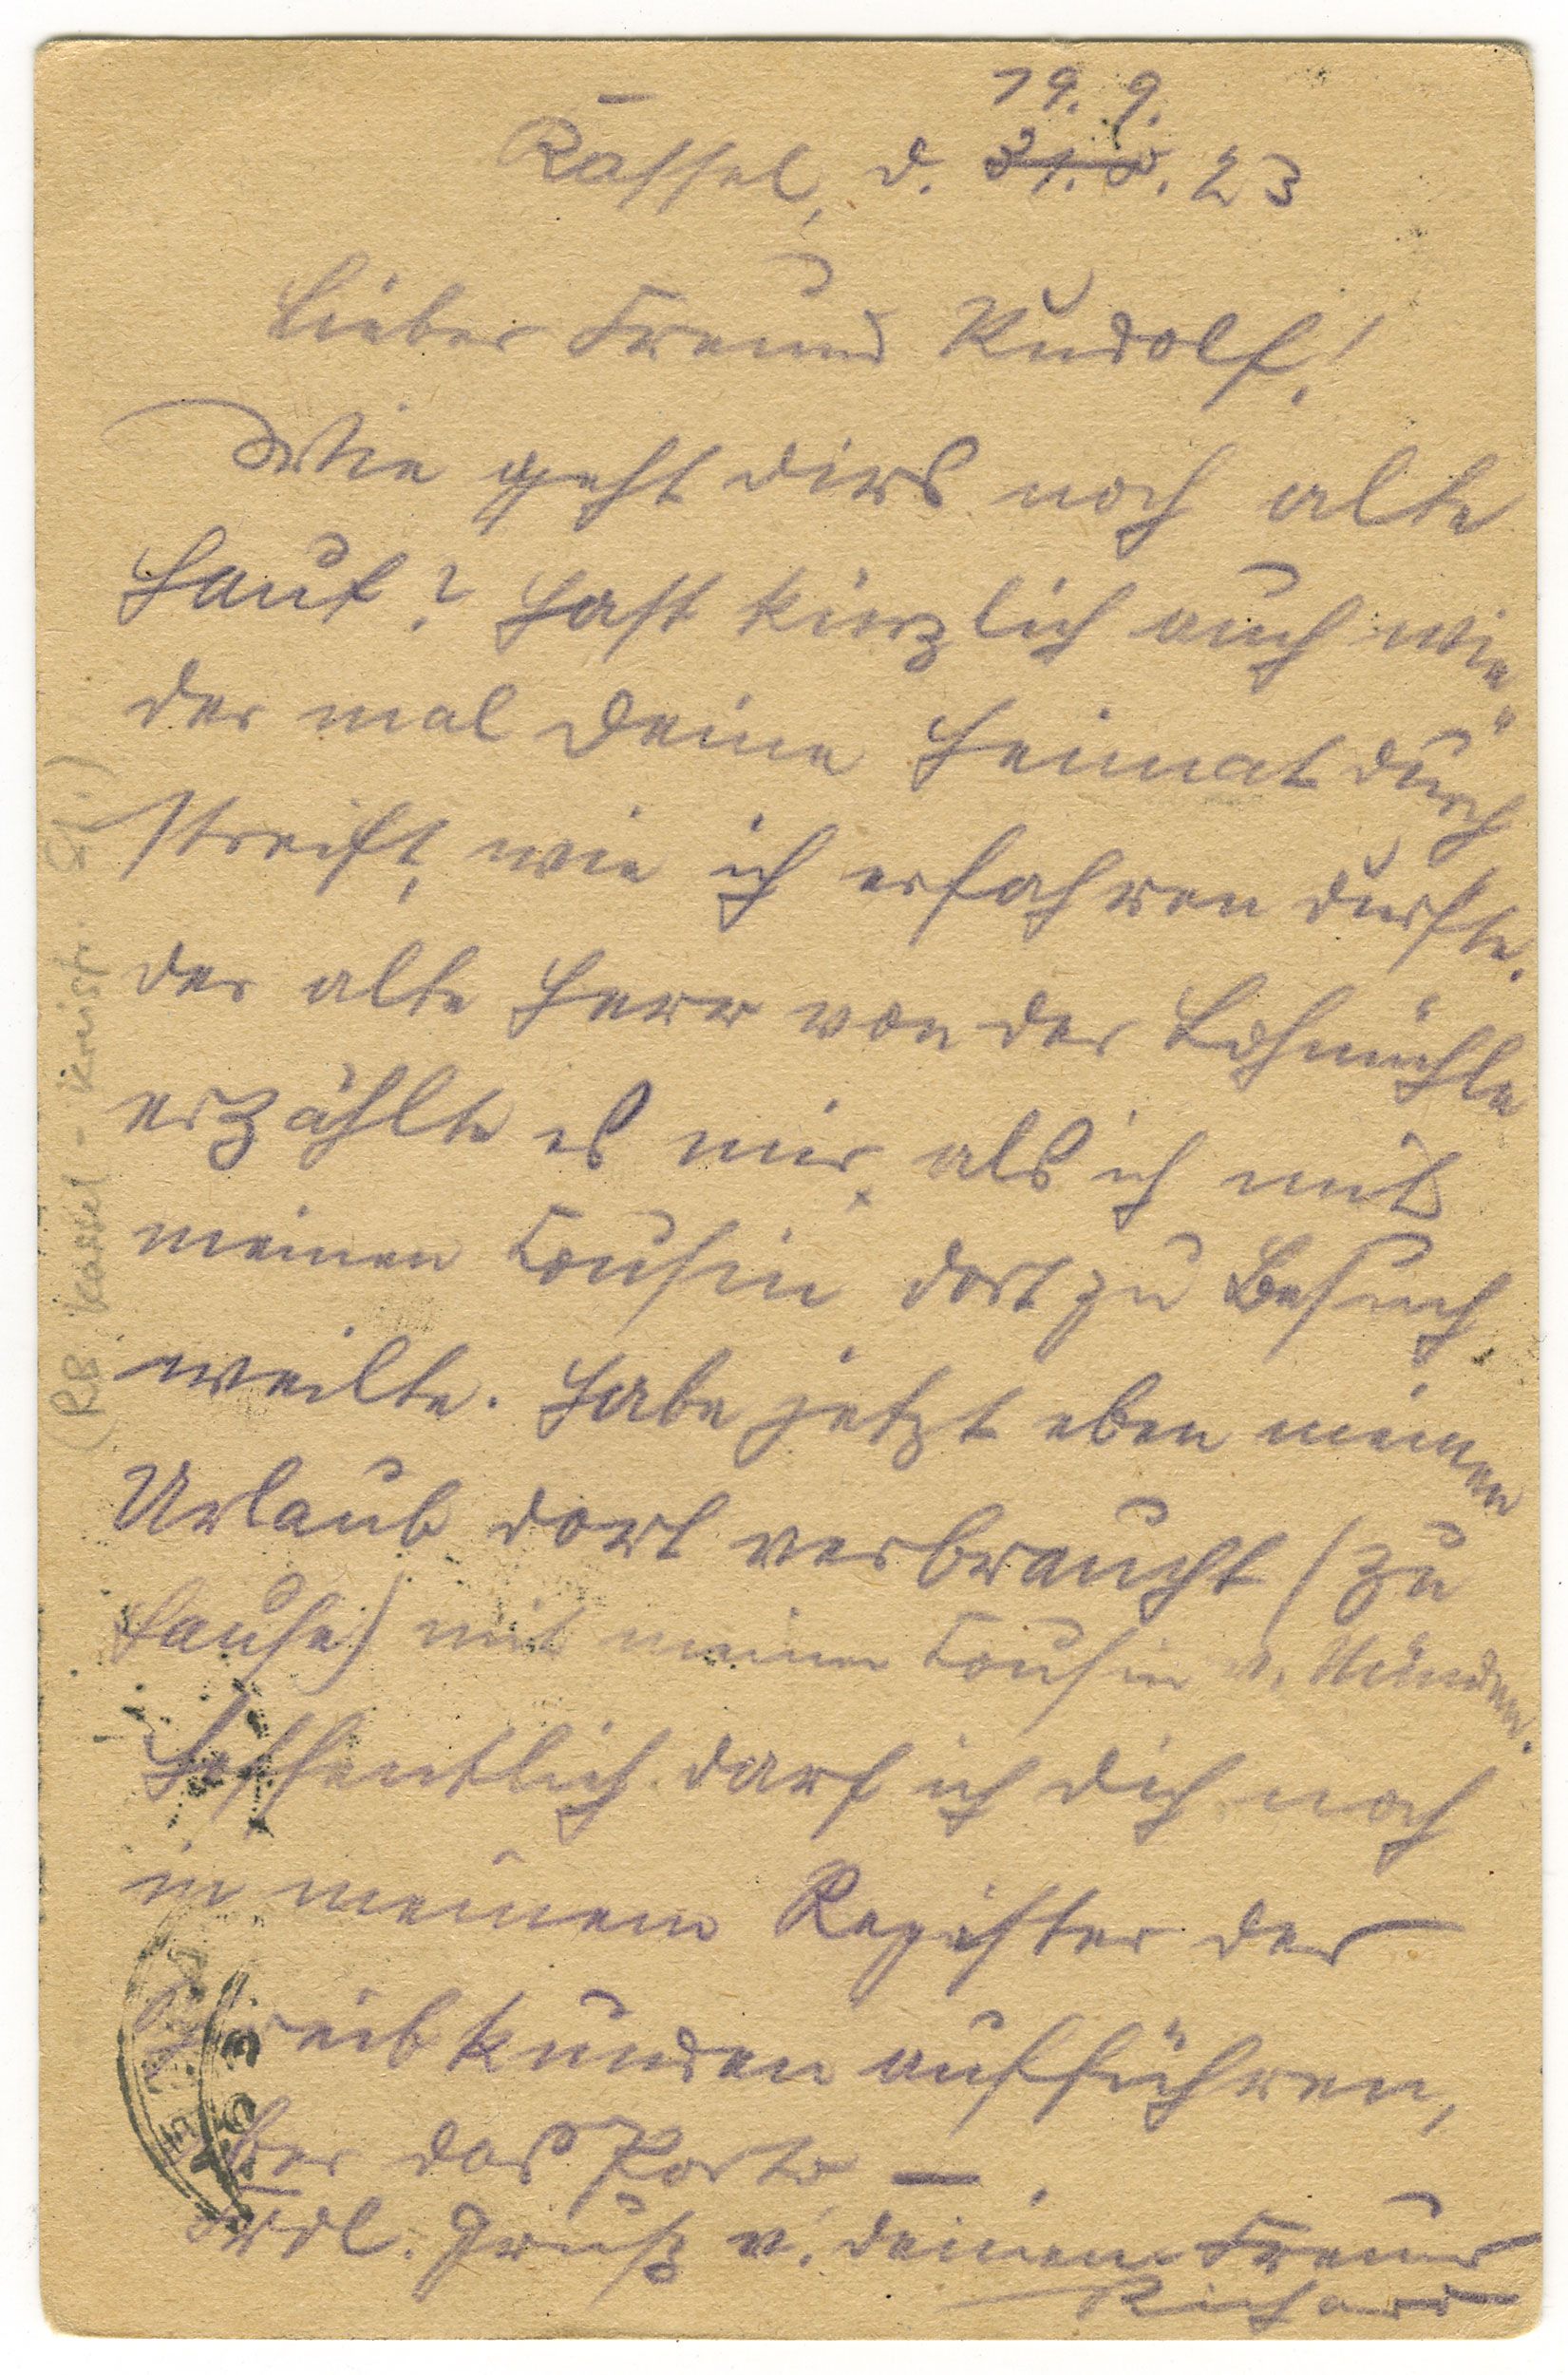 19. 9.
Kassel, d. 31. 8. 23
Lieber Freund Rudolf!
Wie geht dirs noch alte
Haut? Hast kürzlich auch wie-
der mal Deine Heimat durch
streift, wie ich erfahren durfte.
der alte Herr von der Lohmühle
erzählte es mir, als ich mit
meinen Cousin dort zu Besuch
weilte. Habe jetzt eben meinen
Urlaub dort verbraucht (zu
Hause) mit meinen Cousin v. Münden.
Hoffentlich darf ich dich noch
in meinem Register der
Schreibkunden aufführen,
aber das Porto —.
Frdl. Gruß v. deinem Freund
Richard